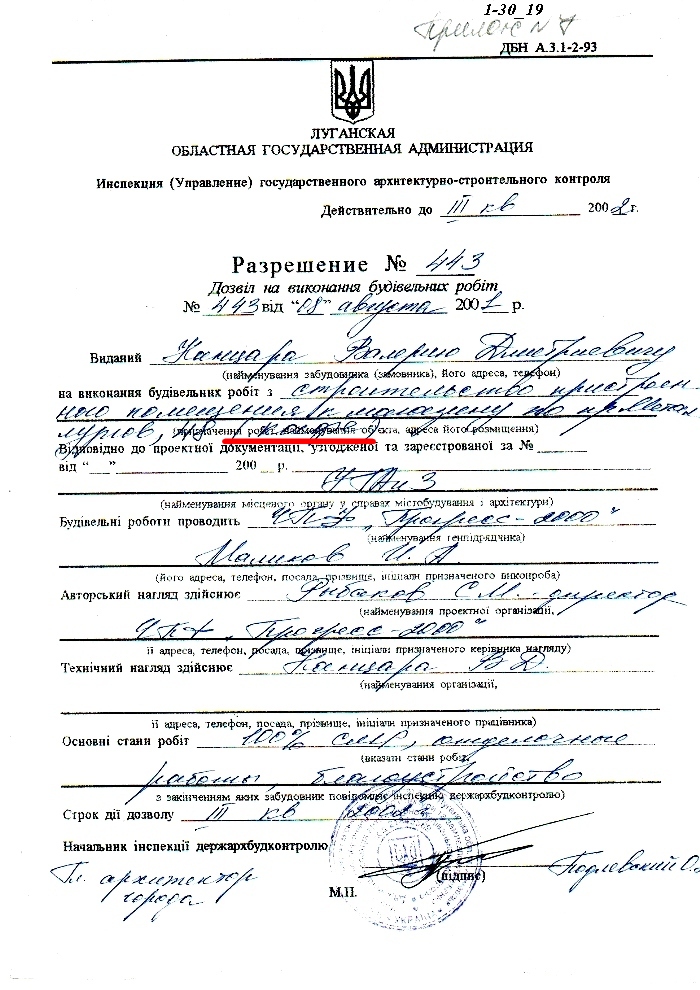 1-30_19
Прилож N 7
ДБН А.3.1-2-93
ЛУГАНСКАЯ
ОБЛАСТНАЯ ГОСУДАРСТВЕННАЯ АДМИНИСТРАЦИЯ
Инспекция (Управление) государственного архитектурно-строительного контроля
Действительно до III кв 2002г.
Разрешение № 443
Дозвіл на виконання будівельних робіт
№ 443 від "08" августа 2001 р.
Виданий Канцара Валерию Дмитриевичу
(найменування забудовника (замовника), його адреса, телефон)
на виконання будівельних робіт з строительство пристроен-
ного помещения к магазину по пр. Метал
лургов,
(призначення робіт, найменування об'єкта, адреса його розміщення)
Відповідно до проектної документації, узгодженої та зареєстрованої за №
від "__" 200 р.
УГАиЗ
(найменування місцевого органу у справах містобудування і архітектури)
Будівельні роботи проводить ЧПФ "Прогресс-2000"
(найменування генпідрядчика)
Маликов И. А.
(його адреса, телефон, посада, прізвище, ініціали призначеного виконроба)
Авторський нагляд здійснює Рыбаков С.М. директор
(найменування проектної організації,
ЧПФ "Прогресс-2000"
її адреса, телефон, посада, прізвище, ініціали призначеного керівника нагляду)
Технічний нагляд здійснює Канцара В.Д.
(найменування організації,
її адреса, телефон, посада, прізвище, ініціали призначеного працівника)
Основні стани робіт 100% СМР, отделочные
(вказати стани робіт,
работы, благоустройство
з закінченням яких забудовник повідомляє інспекцію держархбудконтролю)
Строк дії дозволу III кв 2002г
Начальник інспекції держархбудконтролю
(підпис) Подлевский О.
Гл. архитектор
города
М.П.